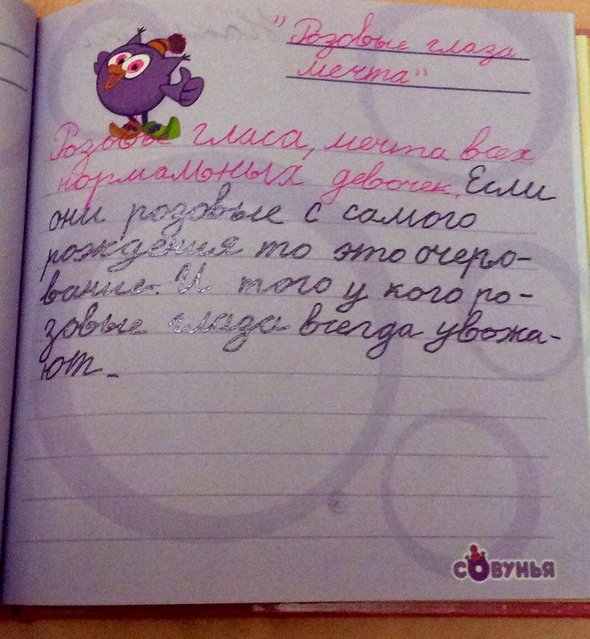 "Розовые глаза
мечта"
Розовые гласа, мечта всех
нормальных девочек. Если
они розовые с самого
рождения то это очеро-
вание. И того у кого ро-
зовые глаза всегда увожа-
ют.
СОВУНЬЯ